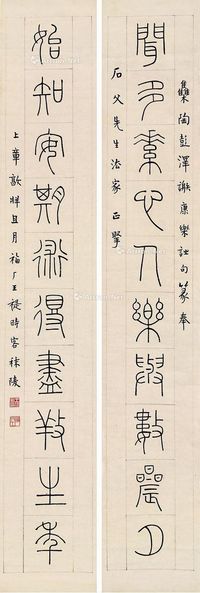 集陶彭澤謝康樂詩句篆奉
聞多素心人樂與數晨夕
石父先生法家正掔
始知安期術得盡養生年
上章敦牂且月福厂王禔時客秣陵